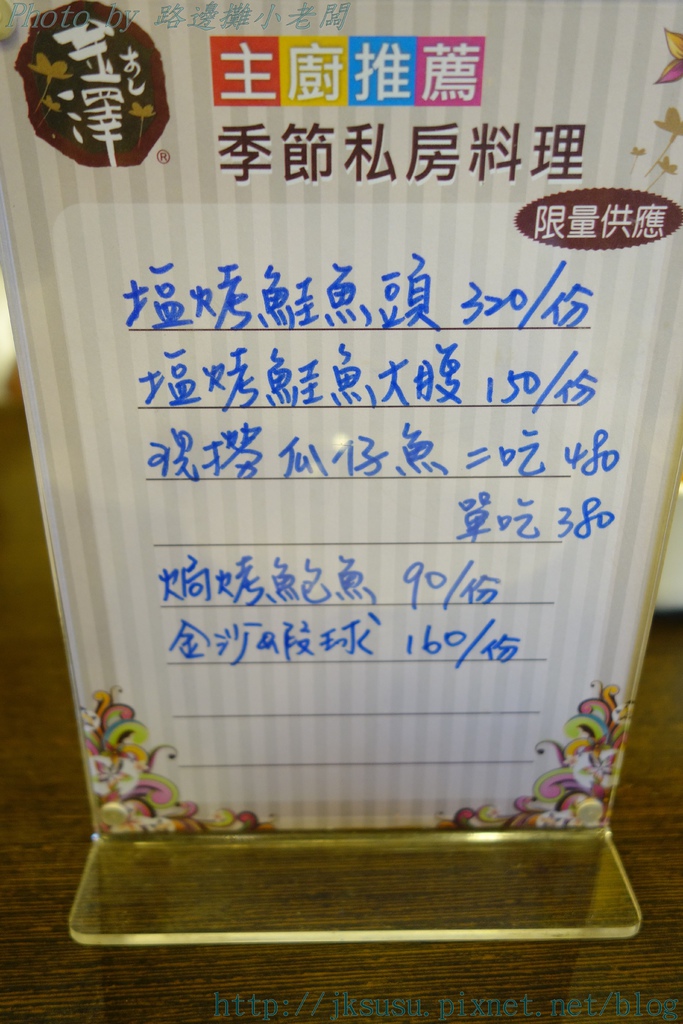 Photo by 路邊攤小老闆
金澤
あし
®
主廚推薦
季節私房料理
限量供應
塩烤鮭魚頭 320/份
塩烤鮭魚大腹 150/份
現撈瓜仔魚 二吃 480
單吃 380
焗烤鮑魚 90/份
金沙蝦球 160/份
http://jksusu.pixnet.net/blog